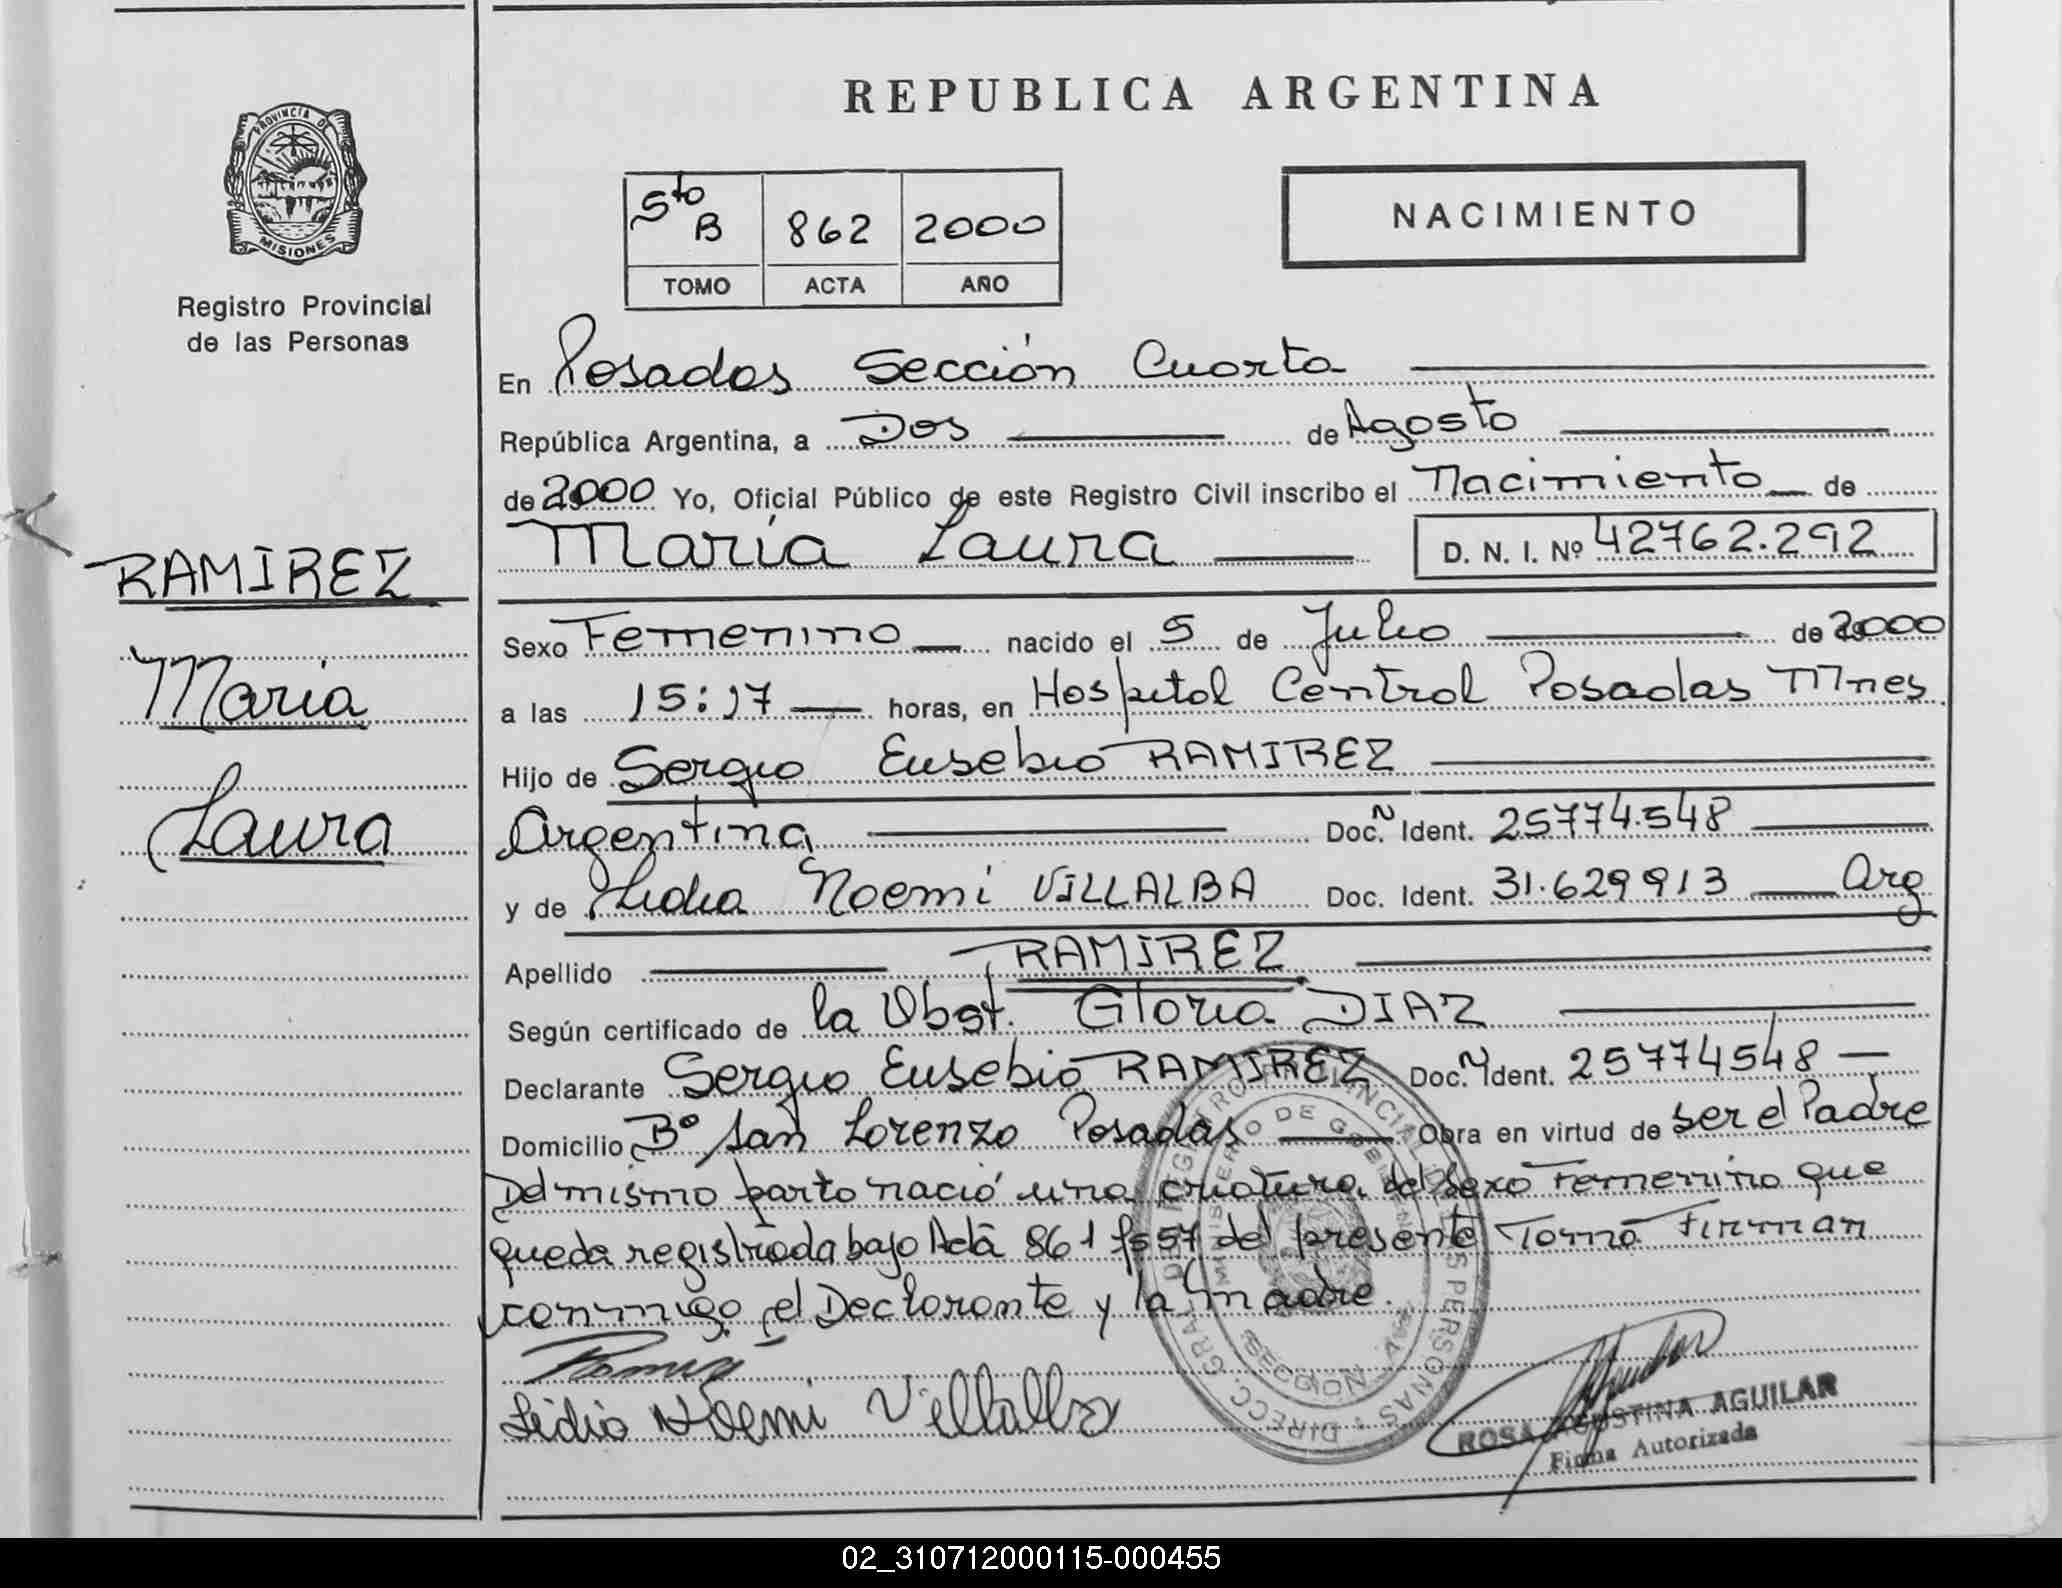 REPUBLICA ARGENTINA
PROVINCIA DE
MISIONES
Registro Provincial
de las Personas
5to B 862 2000
TOMO ACTA AÑO
NACIMIENTO
En Posadas Sección Cuarta
República Argentina, a Dos de Agosto
de 2000 Yo, Oficial Público de este Registro Civil inscribo el Nacimiento de
María Laura D. N. I. Nº 42762.292
RAMIREZ
María
Laura
Sexo Femenino nacido el 5 de Julio de 2000
a las 15:17 horas, en Hospital Central Posadas Mnes
Hijo de Sergio Eusebio RAMIREZ
Argentina Doc. N Ident. 25774.548
y de Lidia Noemí VILLALBA Doc. Ident. 31.629913 Arg
Apellido RAMIREZ
Según certificado de la Obst. Gloria DIAZ
Declarante Sergio Eusebio RAMIREZ Doc. N Ident. 25774548
Domicilio Bº San Lorenzo Posadas Obra en virtud de ser el Padre
Del mismo parto nació una criatura del sexo Femenino que
queda registrada bajo Acta 861 fs 57 del presente Tomo Firman
conmigo el Declarante y la madre.
Lidia Noemi Villalba
ROSA AGUSTINA AGUILAR
Firma Autorizada
02_310712000115-000455